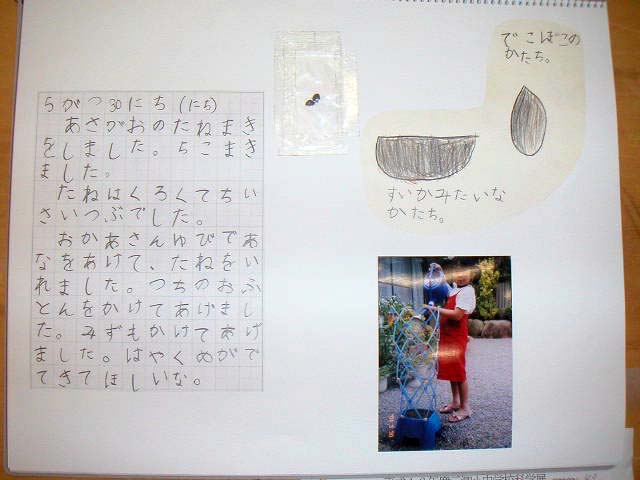 5がつ30にち(にち)
あさがおのたねまき
をしました。5こまき
ました。
たねはくろくてちい
さいつぶでした。
おかあさんゆびであ
なをあけて、たねをい
れました。つちのおふ
とんをかけてあげまし
た。みずもかけてあげ
ました。はやくめがで
てきてほしいな。
でこぼこの
かたち。
すいかみたいな
かたち。